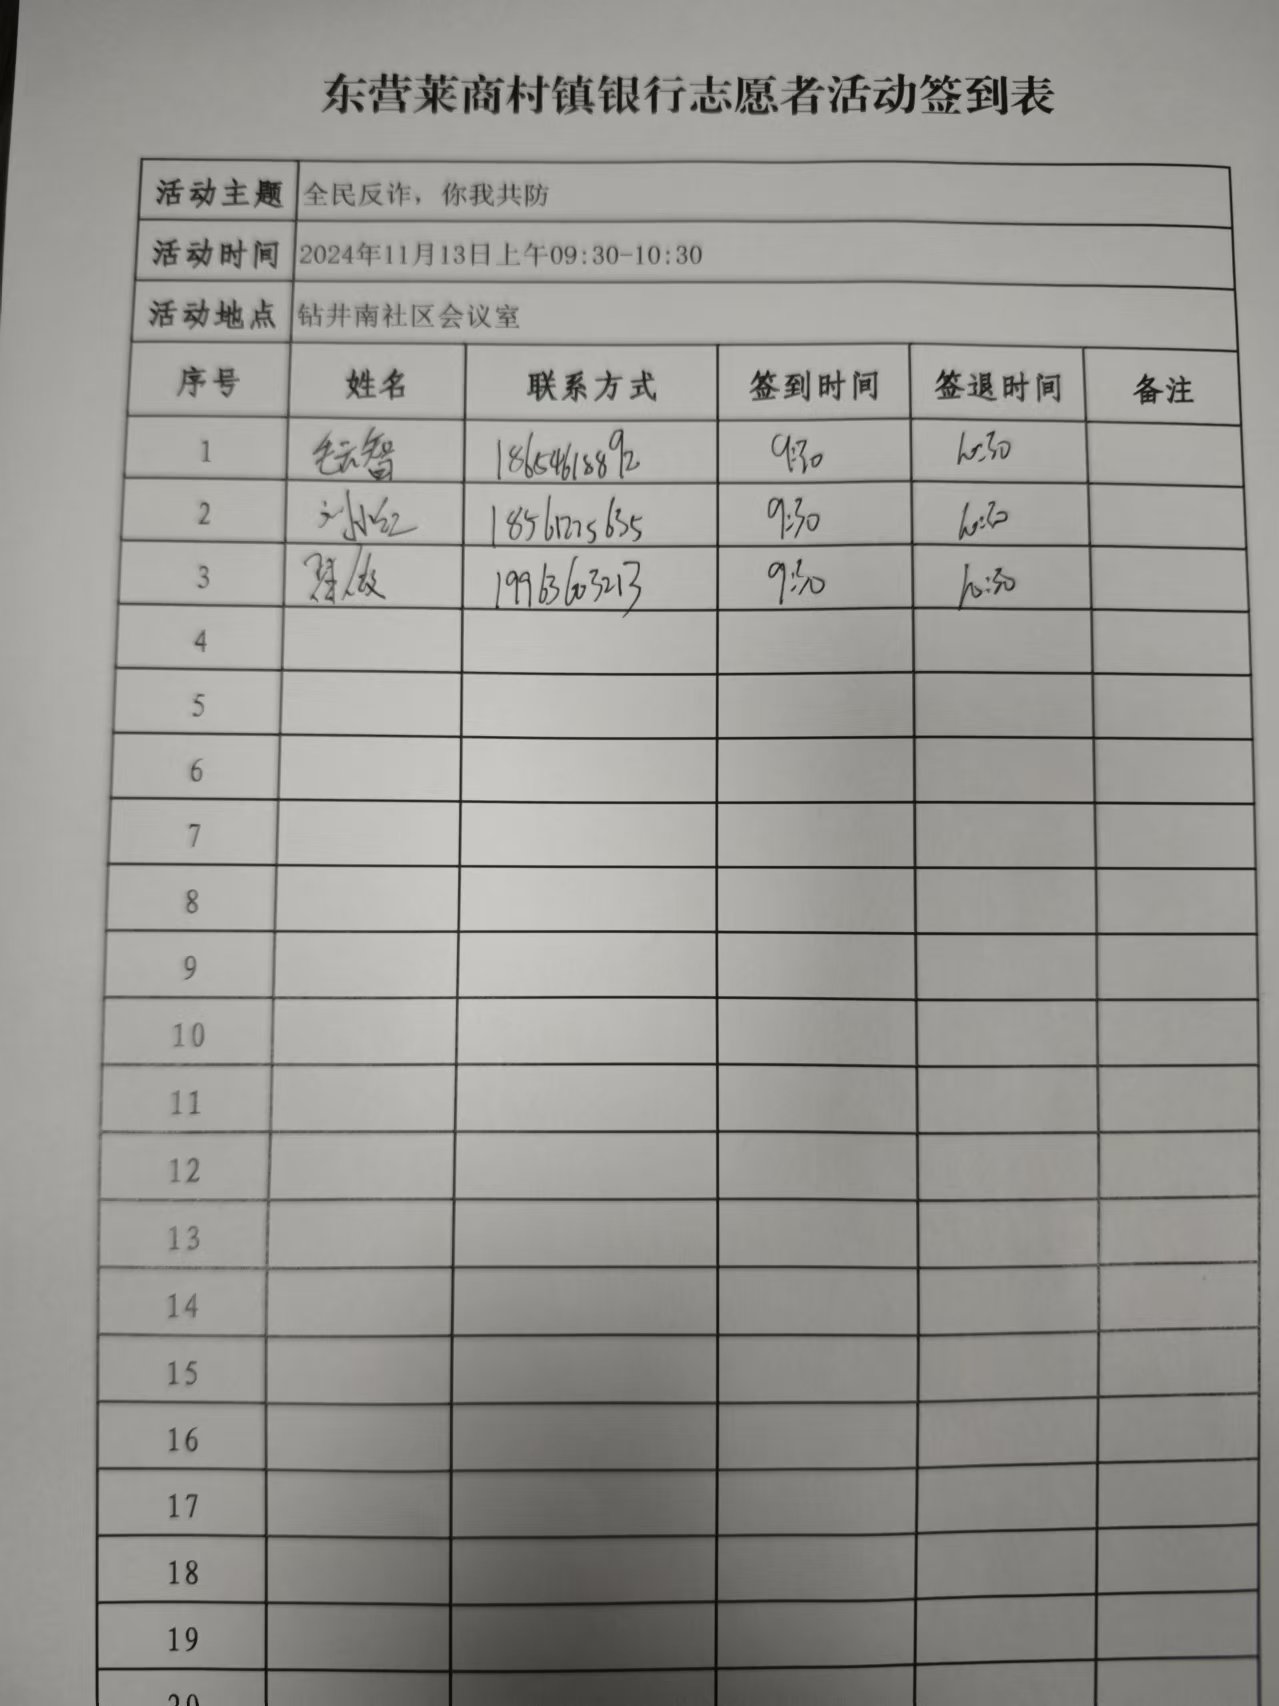 东营莱商村镇银行志愿者活动签到表
活动主题 全民反诈，你我共防
活动时间 2024年11月13日上午09:30-10:30
活动地点 钻井南社区会议室
序号 姓名 联系方式 签到时间 签退时间 备注
1 18654618892 9:30 10:30
2 刘小红 18561225635 9:30 10:30
3 19963603213 9:30 10:30
4
5
6
7
8
9
10
11
12
13
14
15
16
17
18
19
20